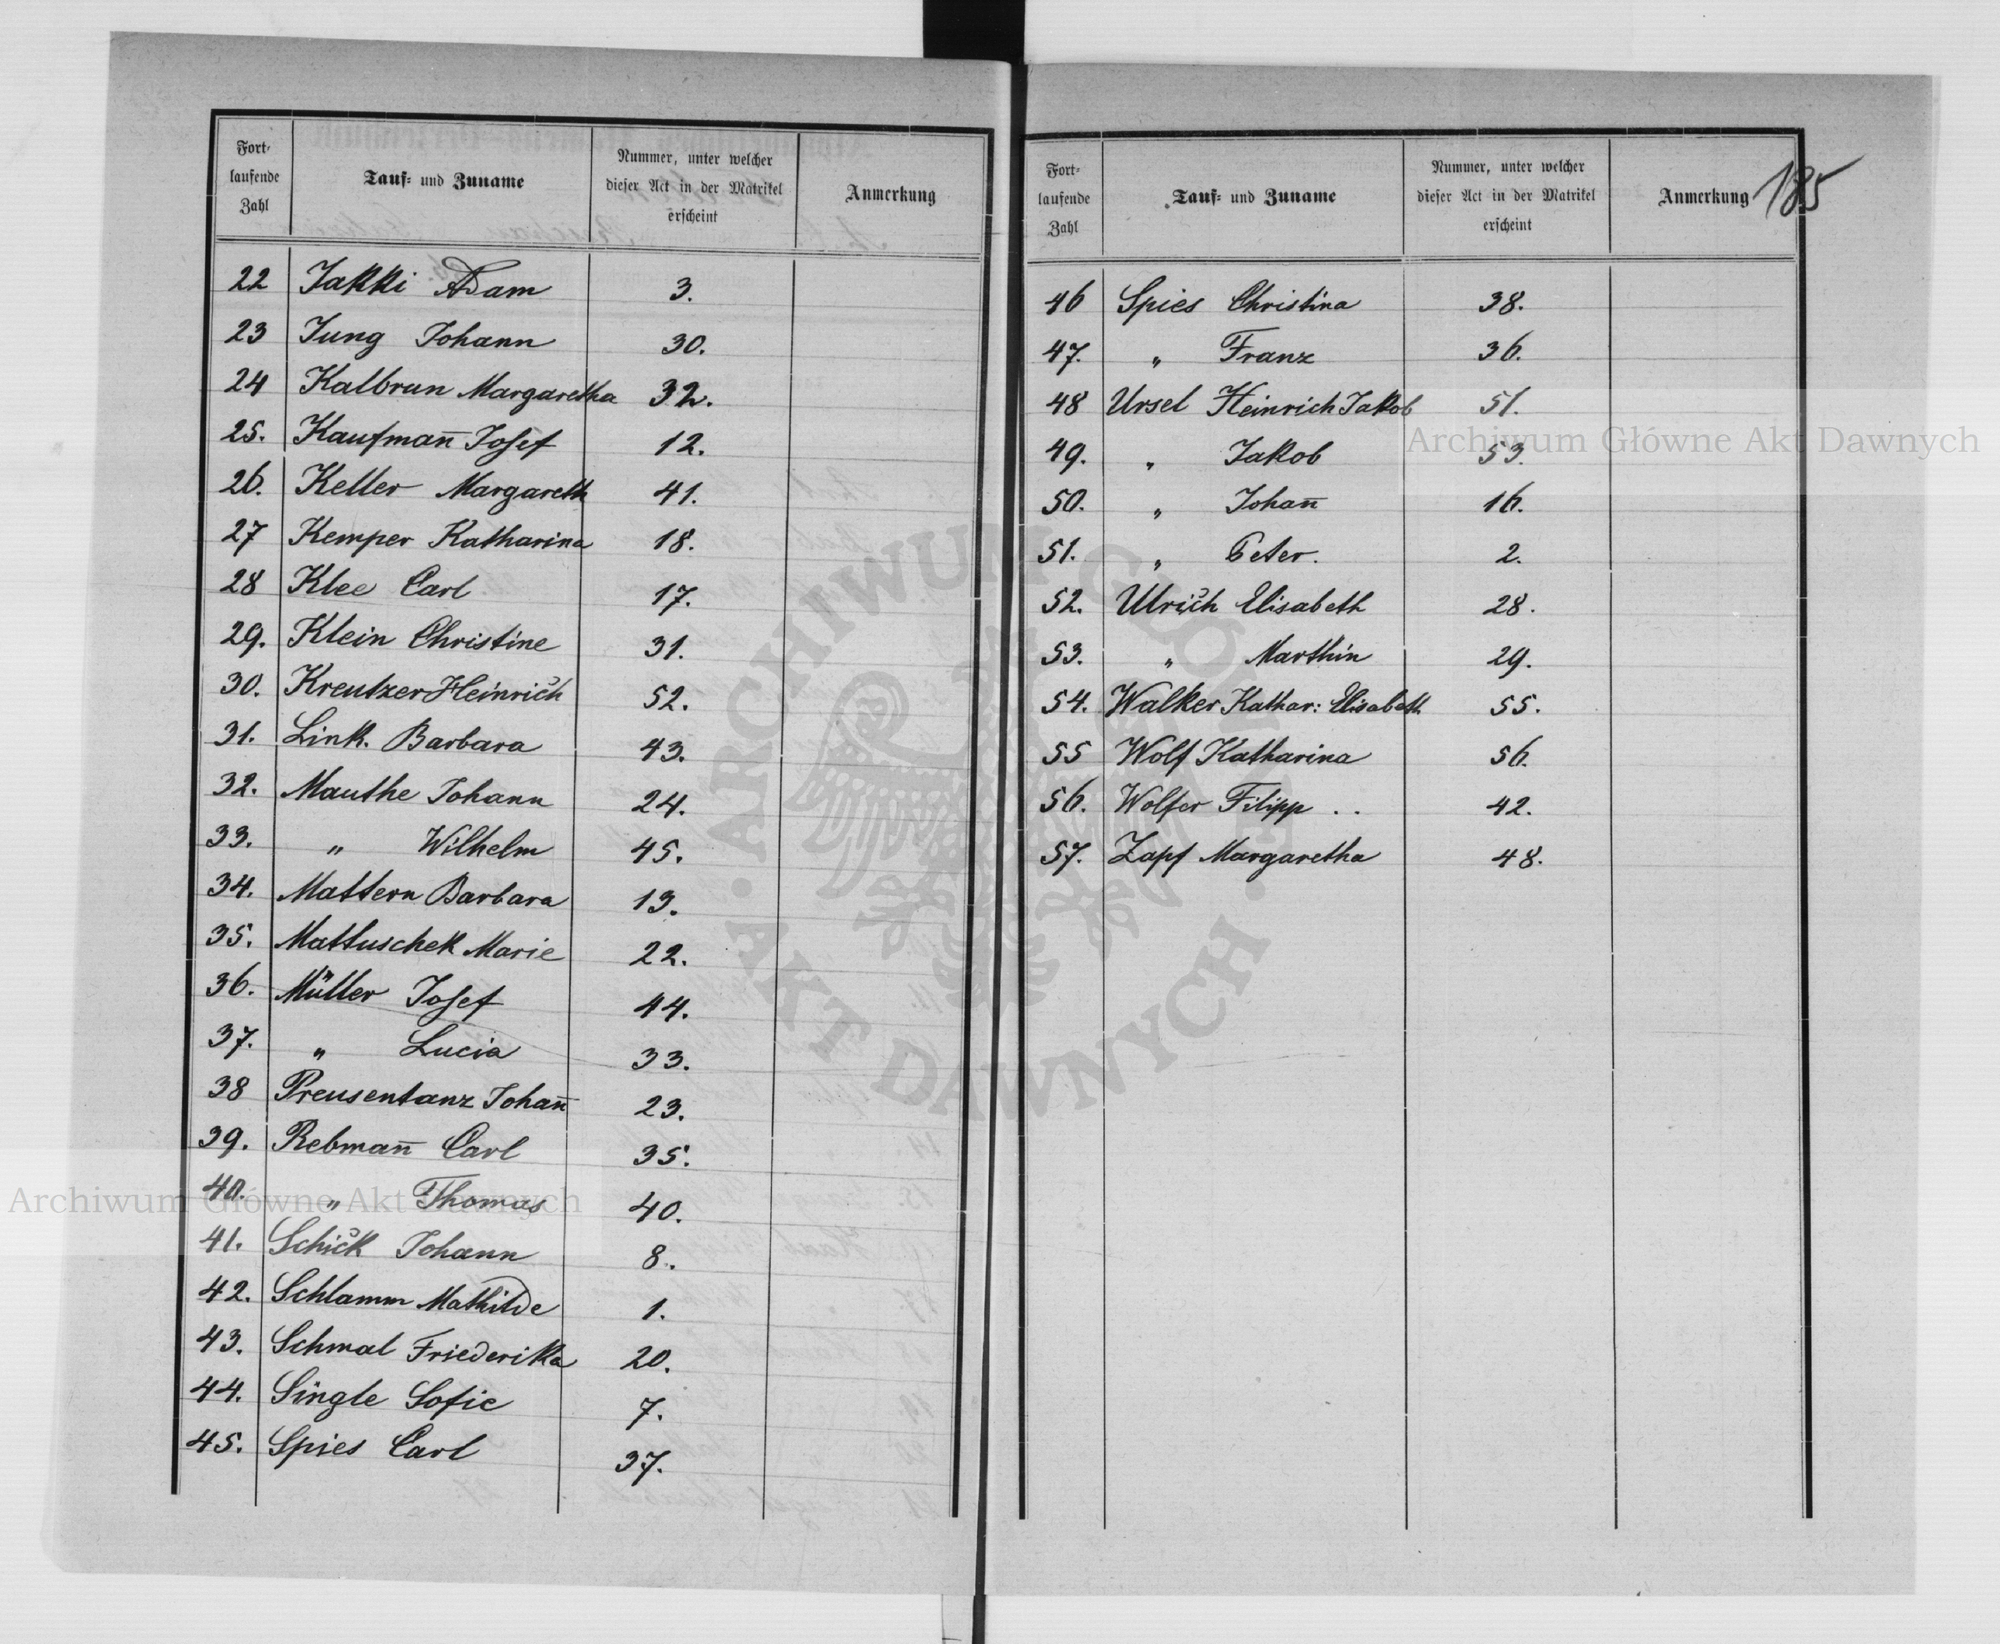 Fort-
laufende
Zahl
Tauf- und Zuname
Nummer, unter welcher
dieser Act in der Matrikel
erscheint
Anmerkung
22 Jakki Adam 3.
23 Jung Johann 30.
24 Kalbrun Margaretha 32.
25. Kaufman̄ Josef 12.
26. Keller Margareth 41.
27 Kemper Katharina 18.
28 Klee Carl 17.
29. Klein Christine 31.
30. Kreutzer Heinrich 52.
31. Link. Barbara 43.
32. Mauthe Johann 24.
33. „ Wilhelm 45.
34. Mattern Barbara 13.
35. Mattuschek Marie 22.
36. Müller Josef 44.
37. „ Lucia 33.
38 Preusentanz Johan̄ 23.
39. Rebman̄ Carl 35.
40. „ Thomas 40.
41. Schick Johann 8.
42. Schlamm Mathilde 1.
43. Schmal Friederika 20.
44. Single Sofie 7.
45. Spies Carl 37.
Fort-
laufende
Zahl
Tauf- und Zuname
Nummer, unter welcher
dieser Act in der Matrikel
erscheint
Anmerkung
185
46 Spies Christina 38.
47. „ Franz 36.
48 Ursel Heinrich Jakob 51.
49. „ Jakob 53.
50. „ Johan̄ 16.
51. „ Peter. 2.
52. Ulrich Elisabeth 28.
53. „ Marthin 29.
54. Walker Kathar: Elisabeth 55.
55 Wolf Katharina 56.
56. Wolfer Filipp . . 42.
57. Zapf Margaretha 48.
Archiwum Główne Akt Dawnych
Archiwum Główne Akt Dawnych
ARCHIWUM GŁÓWNE
AKT DAWNYCH